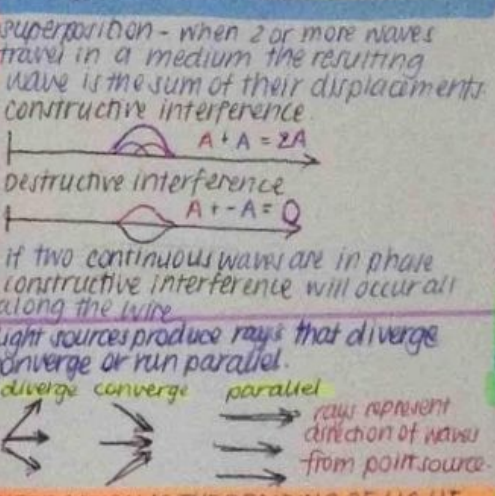 superposition - when 2 or more waves
travel in a medium the resulting
wave is the sum of their displacements.
constructive interference.
A + A = 2A
Destructive interference
A + -A = 0
if two continuous waves are in phase
constructive interference will occur all
along the wire
light sources produce rays that diverge
converge or run parallel.
diverge converge parallel
rays represent
direction of waves
from point source.